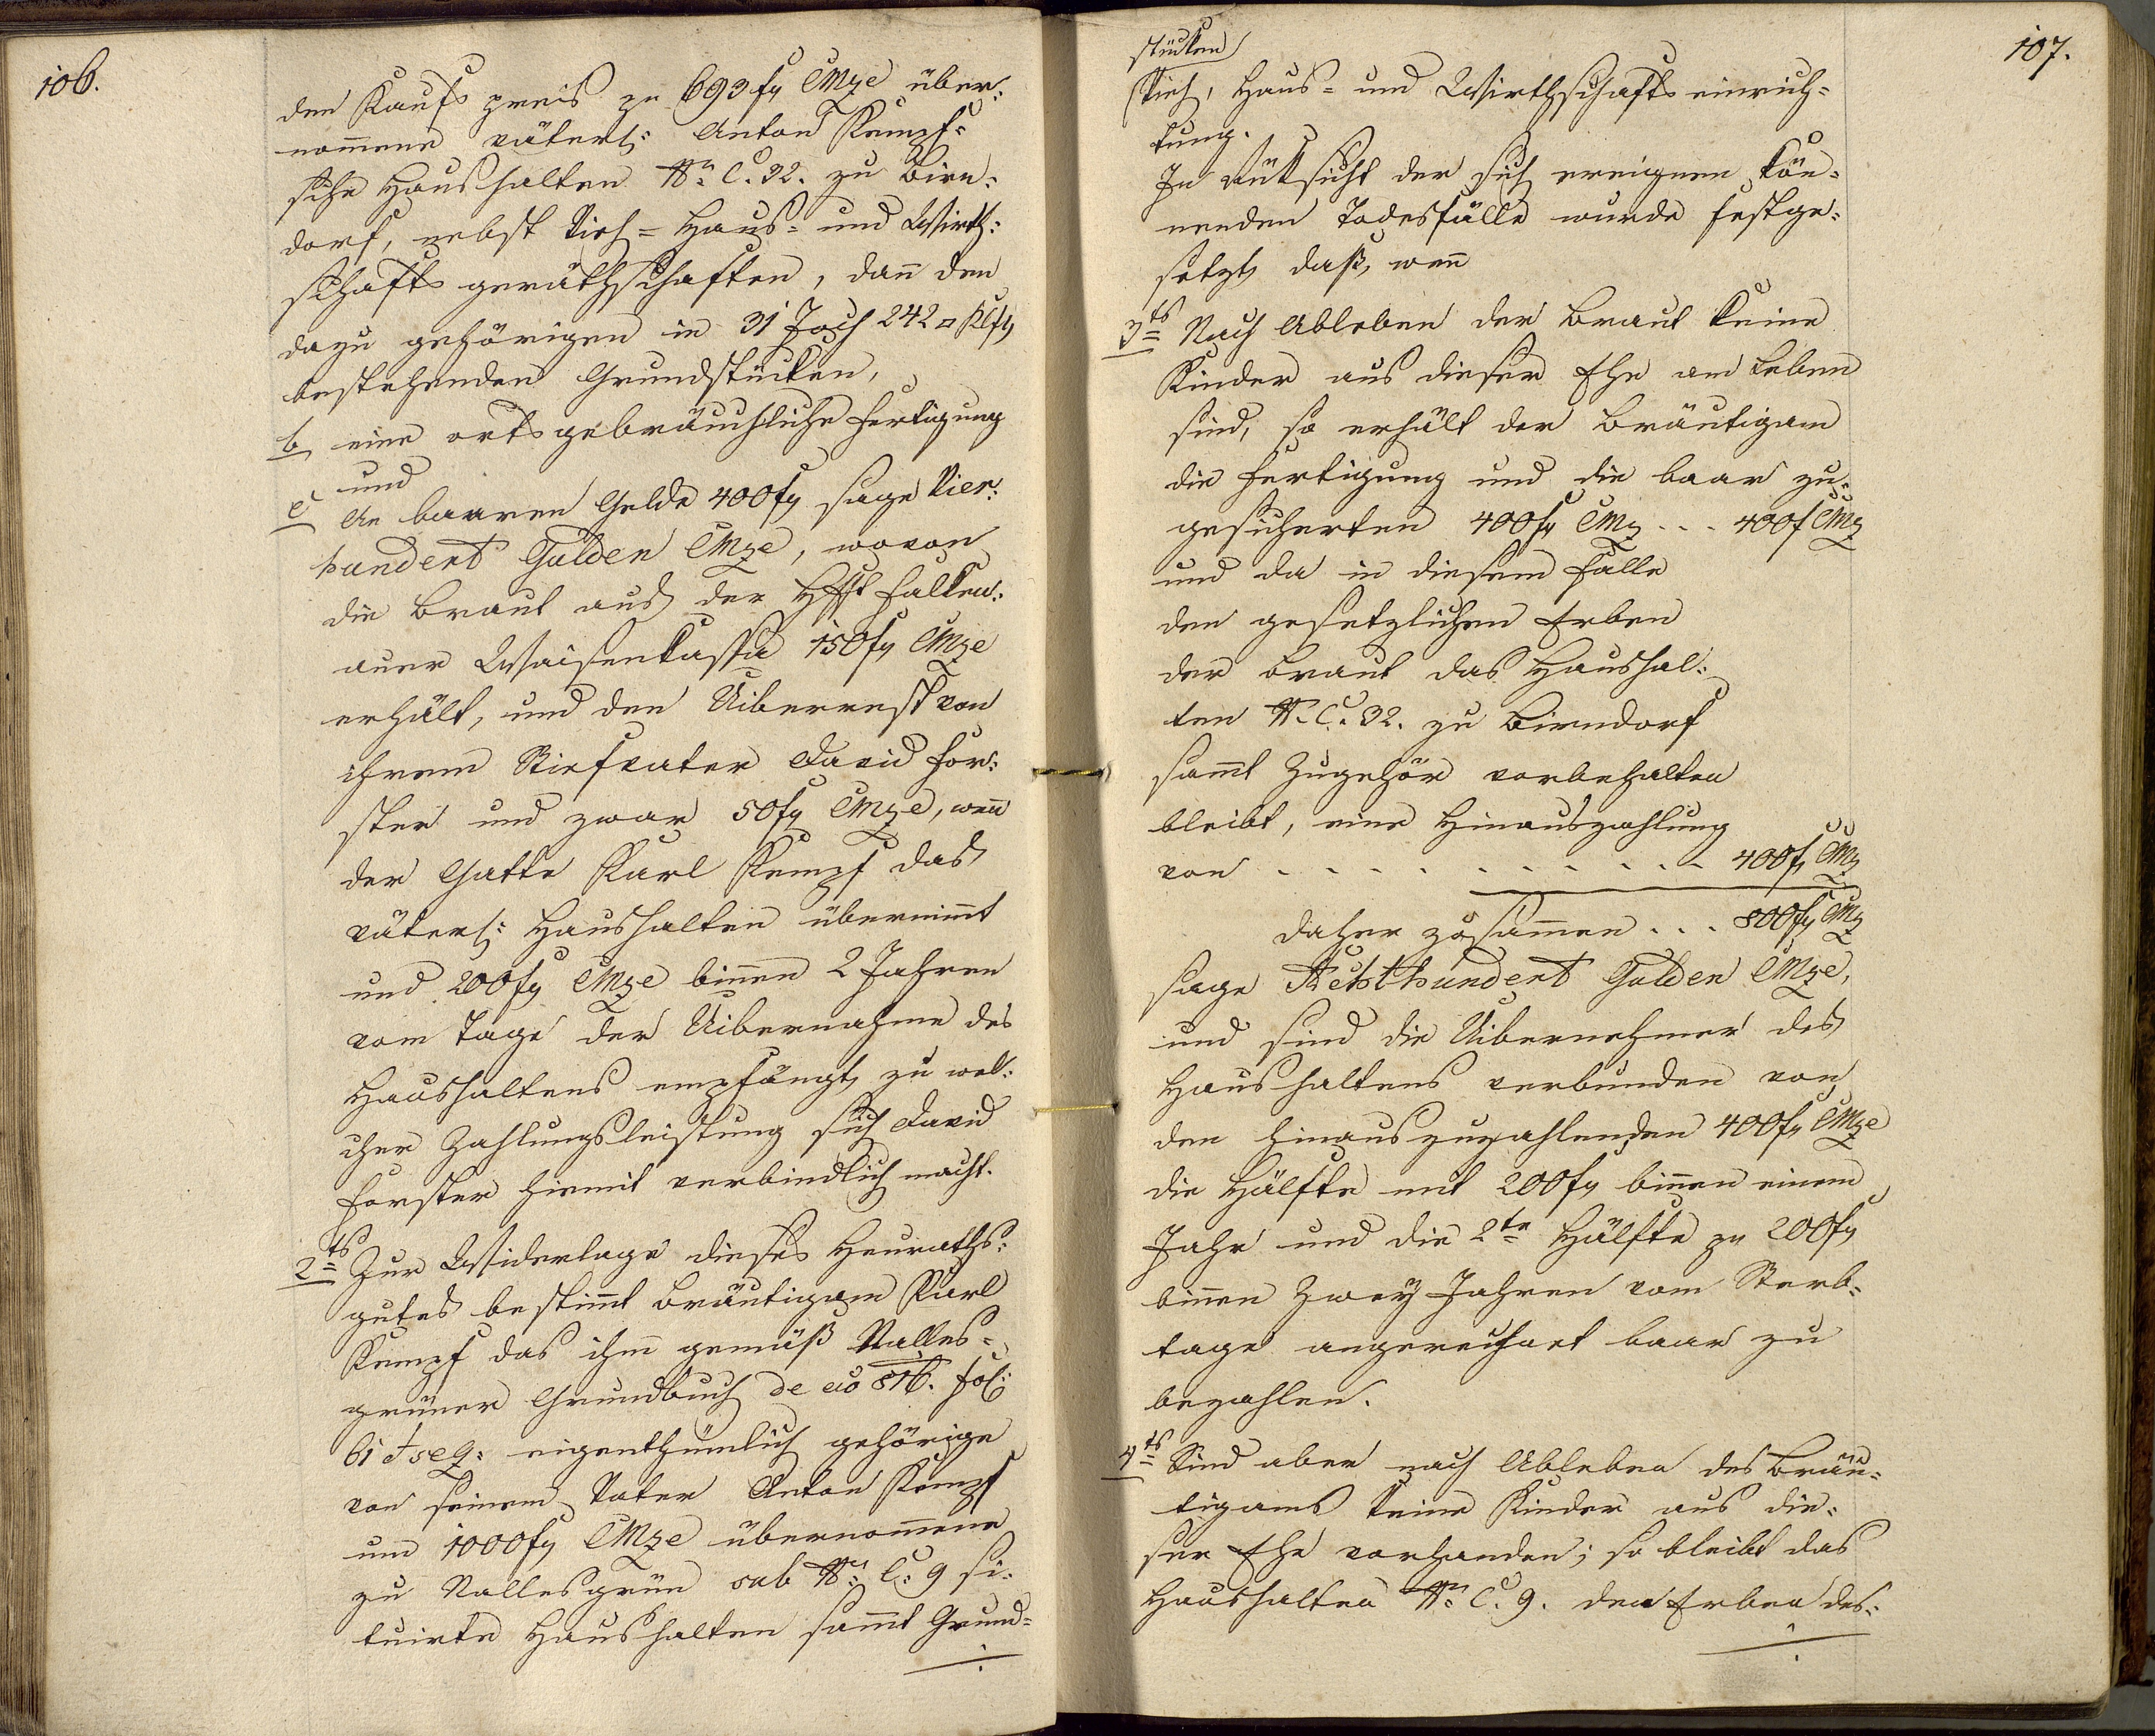 106.
den Kaufs preis zu 693 fg CMze über:
nom̄ene väterl: Anton Kempf:
sche Haushalten Nr C. 32. zu Birn:
dorf, nebst Vieh = Haus = und Wirth:
schafts geräthschaften, dan̄ den
dazu gehörigen in 31 Joch 242 □ Klft
bestehenden Grundstücken,
b eine ortsgebräuchliche Fertigung
und
c An baaren Gelde 400 fg sage Vier:
hundert Gulden CMze, wovon
die Braut aus der Hfft Falken:
auer Waisenkassa 150 fg CMze
erhält, und den Uiberrest von
ihrem Stiefvater David For:
ster und zwar 50 fg CMze, wen̄
der Gatte Karl Kempf das
väterl: Haushalten übernim̄t
und 200 fg CMze bin̄en 2 Jahren
vom Tage der Uibernahme des
Haushaltens empfängt, zu wel:
cher Zahlungsleistung sich David
Forster hiemit verbindlich macht.
2ts Zur Widerlage dieses Heuraths:
gutes bestim̄t Bräutigam Karl
Kempf das ihm gemäß Nalles=
grüner Grundbuch de ao 816. fol:
61 et seq: eigenthümlich gehörige
von seinem Vater Anton Kempf
um 1000 fg CMze übernom̄ene
zu Nallesgrün sub Nr: C: 9 si:
tuirte Haushalten sam̄t Grund=
107.
stücken
Vieh, Haus = und Wirthschafts einrich=
tung.
In Rüksicht der sich ereignen kön=
nenden Todesfälle wurde festge=
setzt, daß, wen̄
3ts Nach Ableben der Braut keine
Kinder aus dieser Ehe am Leben
sind, so erhält der Bräutigam
die Fertigung und die baar zu=
gesicherten 400 fg CMz . . . 400 f CMz
und da in diesem Falle
den gesetzlichen Erben
der Braut das Haushal:
ten N. C. 32. zu Birndorf
sam̄t Zugehör vorbehalten
bleibt, eine Hinauszahlung
von . . . . . . . . . . 400 fg CMz
daher zusam̄en . . . 800 fg CMz
sage Achthundert Gulden CMze,
und sind die Uibernehmer des
Haushaltens verbunden von
den hinauszuzahlenden 400 fg CMze
die Hälfte mit 200 fg bin̄en einem
Jahr und die 2te Hälfte zu 200 fg
bin̄en Zwey Jahren vom Sterb=
tage angerechnet baar zu
bezahlen.
4ts Sind aber nach Ableben des Bräu=
tigams keine Kinder aus die=
ser Ehe vorhanden; so bleibt das
Haushalten Nr. C. 9. den Erben des=